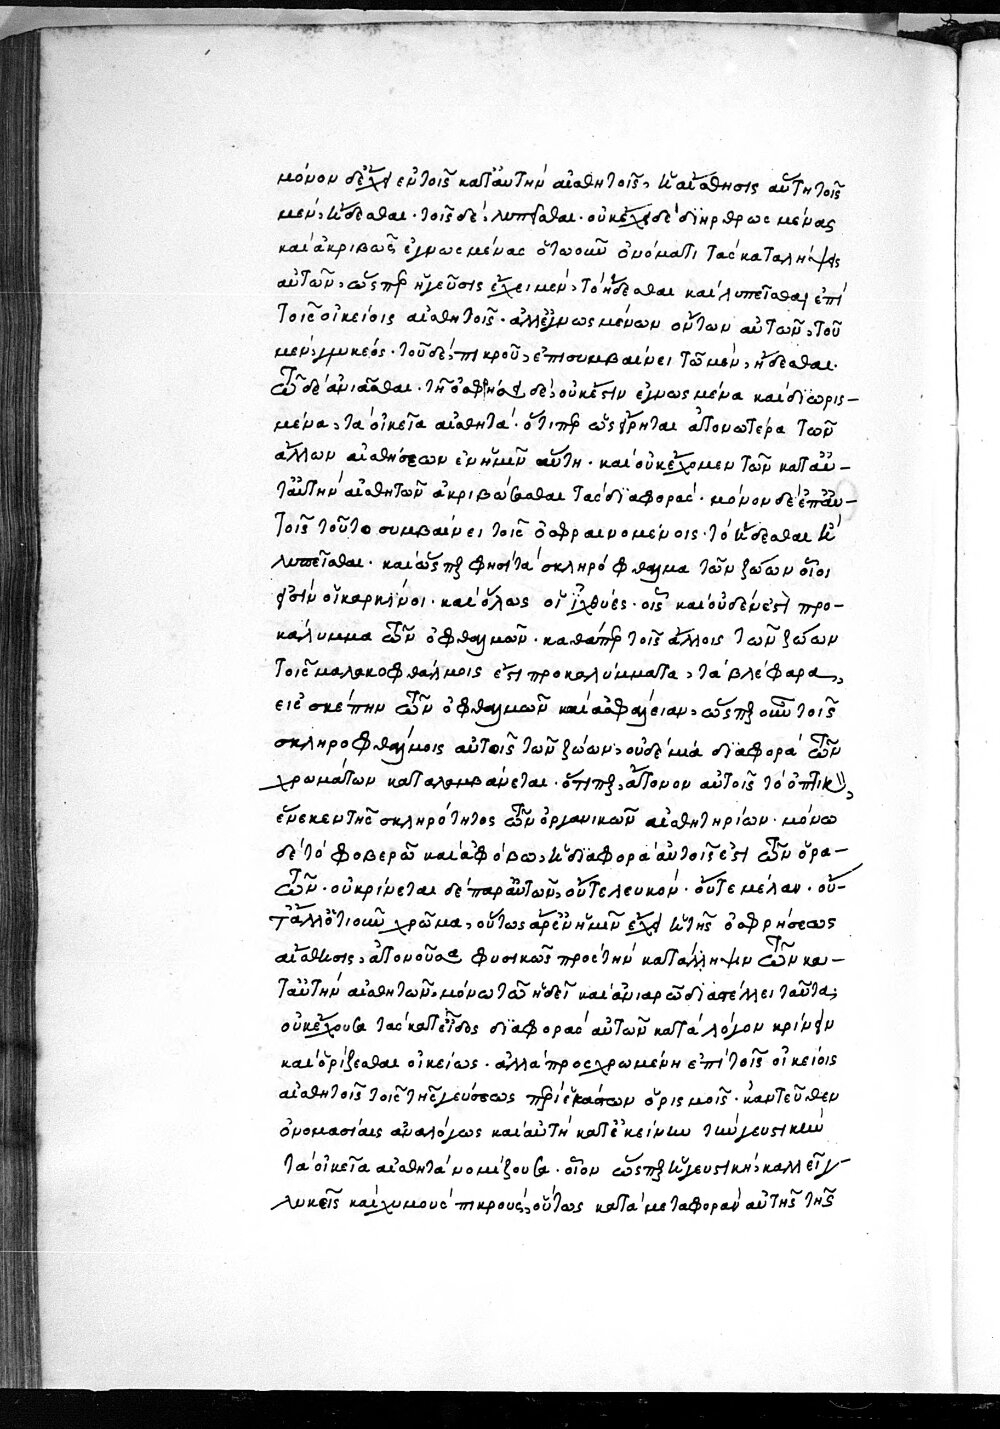 μόνον δὲ ἔχει ἐν τοῖς κατ' αὐτὴν αἰσθητοῖς, ἡ αἴσθησις αὕτη τοῖς
μὲν, ἥδεσθαι· τοῖς δὲ, λυπεῖσθαι· οὐκ ἔχει δὲ διηρθρωσμένας
καὶ ἀκριβῶς ἐγνωσμένας ὁτωοῦν ὀνόματι τὰς καταλήψεις
αὐτῶν, ὥσπερ ἡ γεῦσις ἔχει μὲν, τὸ ἥδεσθαι καὶ λυπεῖσθαι ἐπὶ
τοῖς οἰκείοις αἰσθητοῖς· ἀλλ' ἐγνωσμένων ὄντων αὐτῶν, τοῦ
μὲν, γλυκέος· τοῦ δὲ, πικροῦ, ἐπισυμβαίνει τῷ μὲν, ἥδεσθαι·
τῷ δὲ ἀνιᾶσθαι· τῇ ὀσφρήσει δὲ, οὐκ ἔστιν ἐγνωσμένα καὶ διωρισ-
μένα, τὰ οἰκεῖα αἰσθητά· ὅτιπερ ὡς εἴρηται ἀτονωτέρα τῶν
ἄλλων αἰσθήσεων ἐν ἡμῖν αὕτη· καὶ οὐκ ἔχομεν τῶν κατ' αὐ-
τὴν αἰσθητῶν ἀκριβώσασθαι τὰς διαφοράς· μόνον δὲ ἐπ' αὐ-
τοῖς τοῦτο συμβαίνει τοῖς ὀσφραινομένοις· τὸ ἥδεσθαι ἢ
λυπεῖσθαι· καὶ ὥσπερ φησὶ τὰ σκληρόφθαλμα τῶν ζώων οἷοι
εἰσὶν οἱ καρκίνοι· καὶ ὅλως οἱ ἰχθύες· οἷς καὶ οὐδέν ἐστι προ-
κάλυμμα τῶν ὀφθαλμῶν· καθάπερ τοῖς ἄλλοις τῶν ζώων
τοῖς μαλακοφθάλμοις ἐστὶ προκαλύμματα, τὰ βλέφαρα,
εἰς σκέπην τῶν ὀφθαλμῶν καὶ ἀσφάλειαν, ὥσπερ οὖν τοῖς
σκληροφθάλμοις αὐτοῖς τῶν ζώων, οὐδὲ μία διαφορὰ τῶν
χρωμάτων καταλαμβάνεται· ὅτιπερ, ἄτονον αὐτοῖς τὸ ὀπτικὸν,
ἕνεκεν τῆς σκληρότητος τῶν ὀργανικῶν αἰσθητηρίων· μόνω
δὲ τῷ φοβερῷ καὶ ἀφόβω, ἡ διαφορὰ αὐτοῖς ἐστὶ τῶν ὁρα-
τῶν· οὐ κρίνεται δὲ παρ' αὐτῶν, οὔτε λευκόν· οὔτε μέλαν· οὔ-
τ' ἄλλο ὁτιοῦν χρῶμα, οὕτως ἄρ' ἐν ἡμῖν ἔχει ἡ τῆς ὀσφρήσεως
αἴσθησις, ἀτονοῦσα φυσικῶς πρὸς τὴν κατάληψιν τῶν κα-
τ' αὐτὴν αἰσθητῶν, μόνω τῷ ἡδεῖ καὶ ἀνιαρῷ διαστέλλει ταῦτα,
οὐκ ἔχουσα τὰς κατ' εἶδος διαφορὰς αὐτῶν κατὰ λόγον κρίνειν
καὶ ὁρίζεσθαι οἰκείως· ἀλλὰ προσχρωμένη ἐπὶ τοῖς οἰκείοις
αἰσθητοῖς τοῖς τῆς γεύσεως περὶ ἑκάστων ὁρισμοῖς· κἀντεῦθεν
ὀνομασίαις ἀναλόγως καὶ αὐτὴ κατ' ἐκείνην τὴν γευστικὴν
τὰ οἰκεῖα αἰσθητὰ νομίζουσα· οἷον ὥσπερ ἡ γευστικὴ, καλλεῖ γ-
λυκεῖς καὶ χυμοὺς πικροὺς, οὕτως κατὰ μεταφορὰν αὐτῆς τῆς